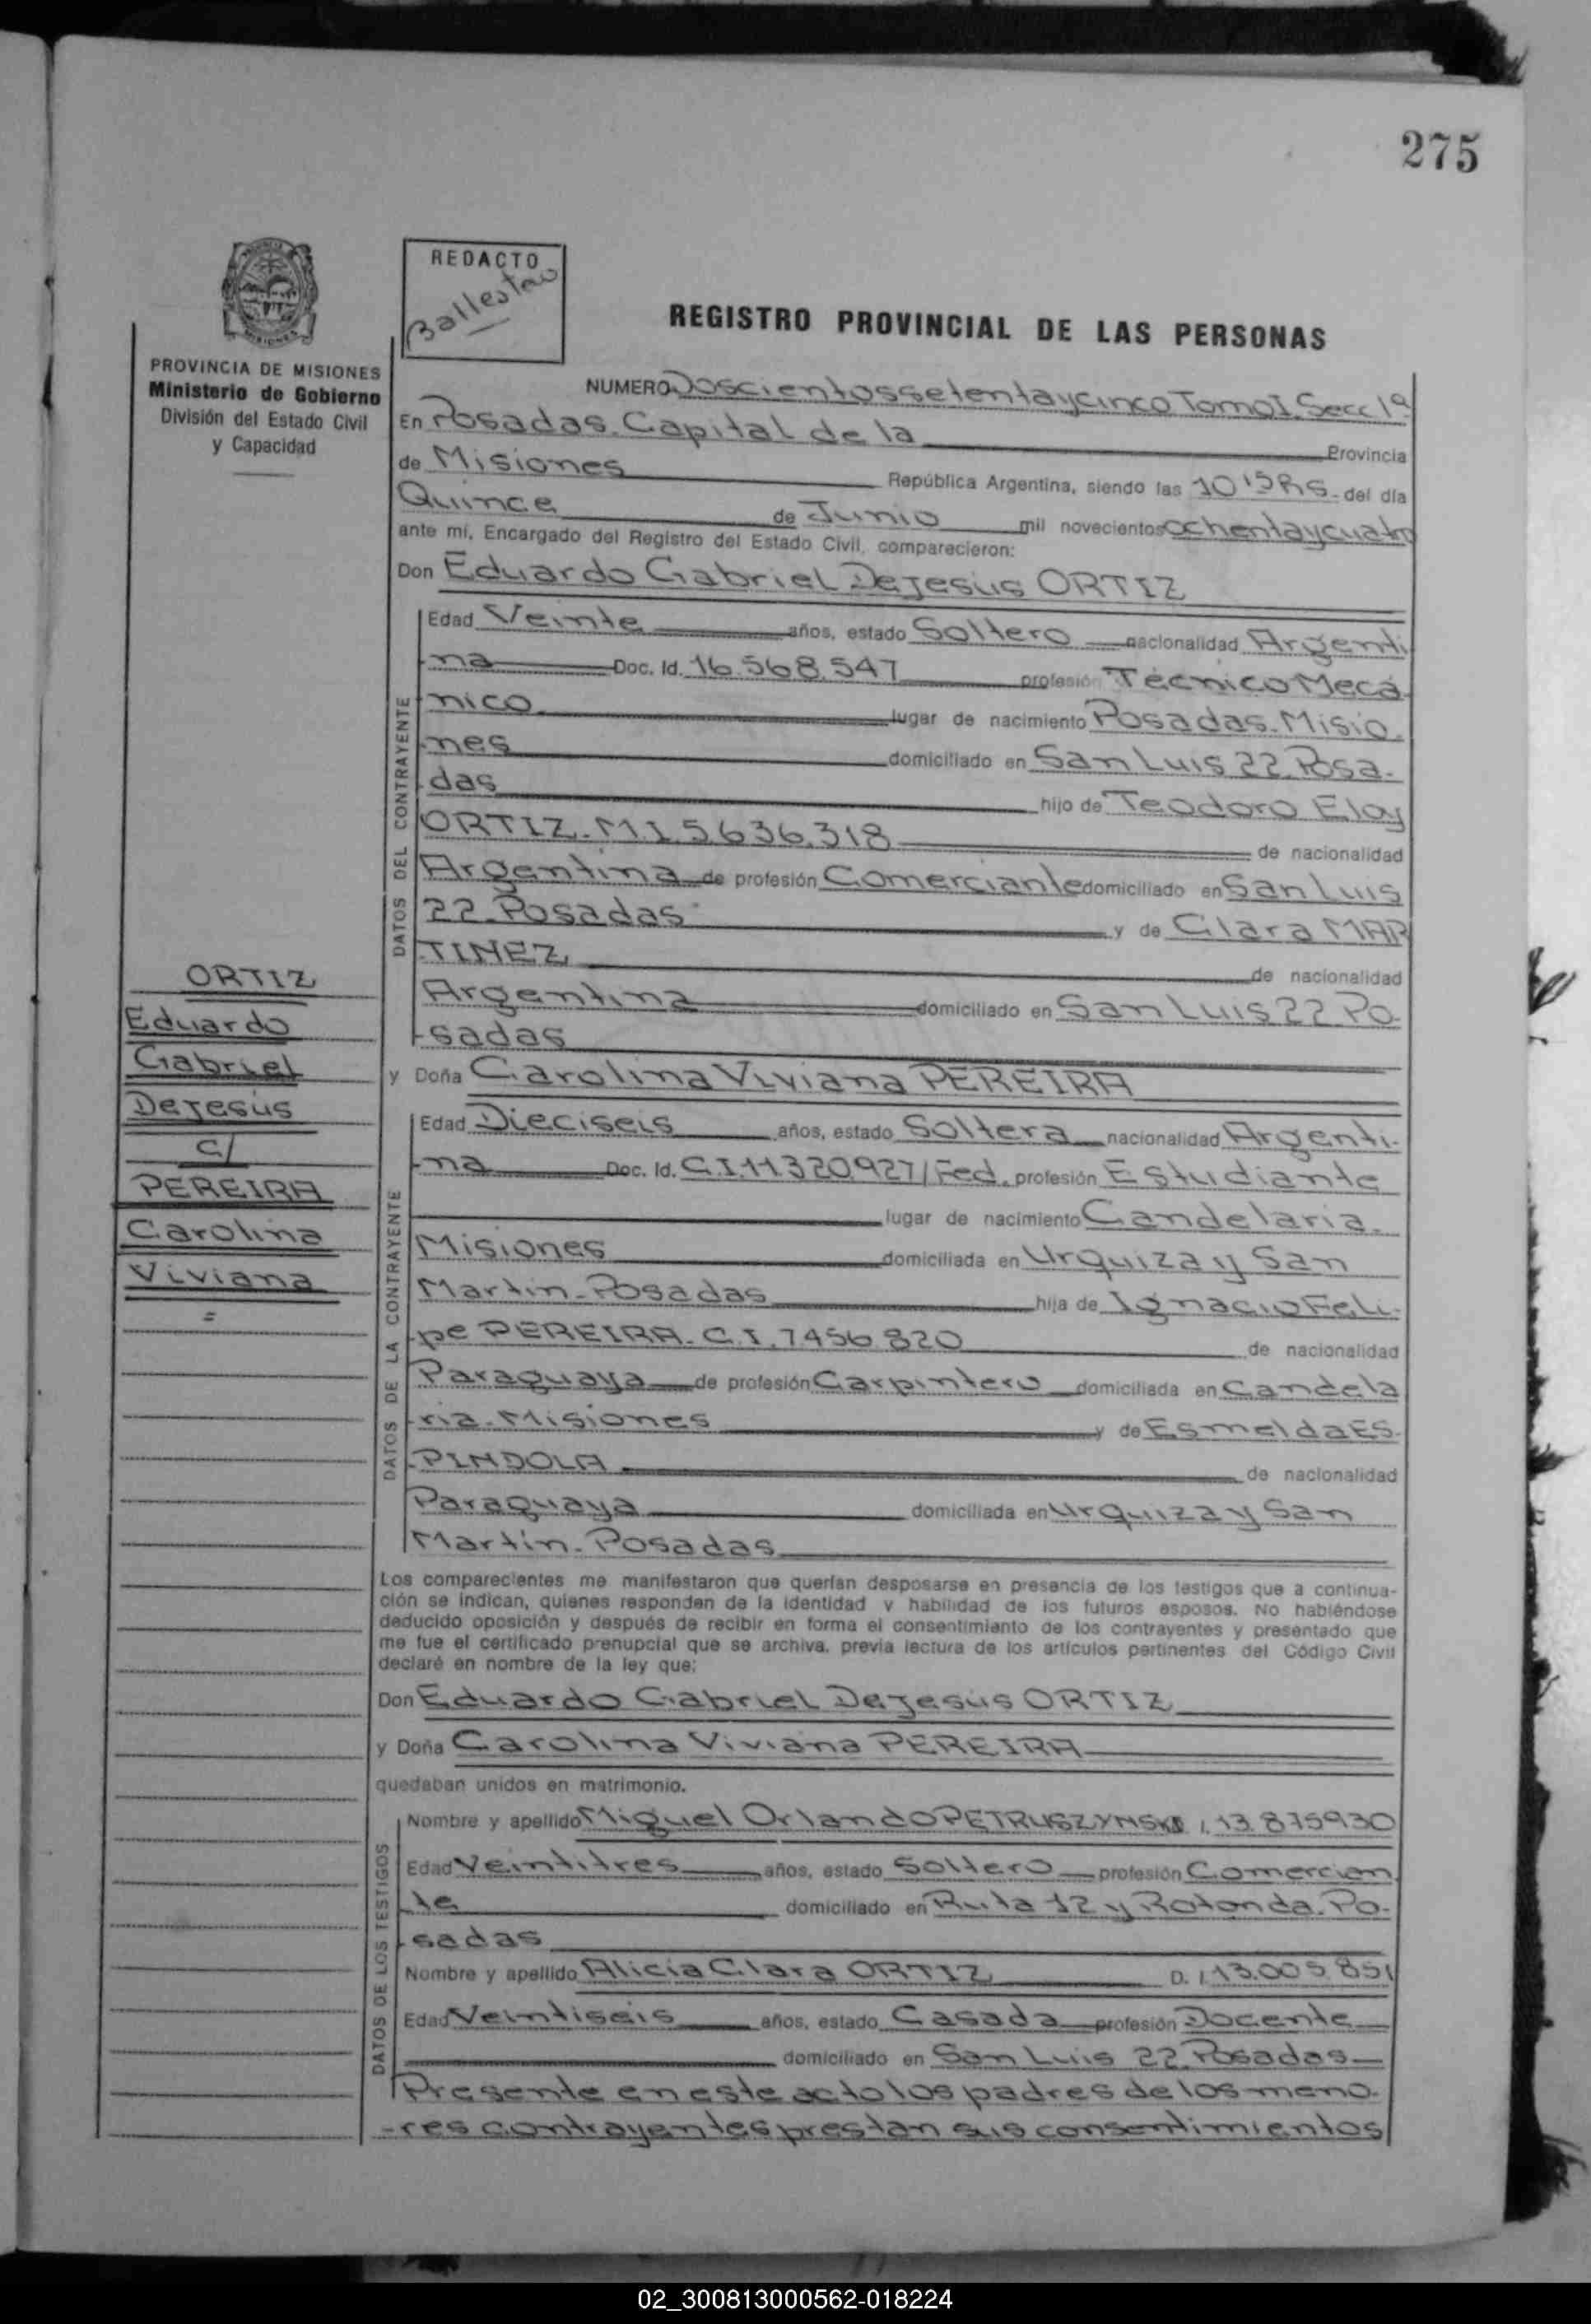 275
REDACTO
REGISTRO PROVINCIAL DE LAS PERSONAS
PROVINCIA DE MISIONES
Ministerio de Gobierno
División del Estado Civil
y Capacidad
NUMERO Doscientos setenta y cinco Tomo I. Secc 1ª
En Posadas. Capital de la Provincia
de Misiones República Argentina, siendo las 10 hs. del día
Quince de Junio mil novecientos ochenta y cuatro
ante mí, Encargado del Registro del Estado Civil, comparecieron:
Don Eduardo Gabriel De Jesús ORTIZ
DATOS DEL CONTRAYENTE
Edad Veinte años, estado Soltero nacionalidad Argenti
-na Doc. Id. 16.568.547 profesión Técnico Mecá-
nico lugar de nacimiento Posadas. Misio-
-nes domiciliado en San Luis 22. Posa-
-das hijo de Teodoro Eloy
ORTIZ. M.I. 5.636.318 de nacionalidad
Argentina de profesión Comerciante domiciliado en San Luis
22. Posadas y de Clara MAR
-TINEZ de nacionalidad
Argentina domiciliado en San Luis 22 Po-
-sadas
ORTIZ
Eduardo
Gabriel
De Jesús
c/
PEREIRA
Carolina
Viviana
=
y Doña Carolina Viviana PEREIRA
DATOS DE LA CONTRAYENTE
Edad Dieciseis años, estado Soltera nacionalidad Argenti-
-na Doc. Id. C.I. 11.320.927/Fed. profesión Estudiante
lugar de nacimiento Candelaria.
Misiones domiciliada en Urquiza y San
Martín. Posadas hija de Ignacio Feli-
-pe PEREIRA. C.I. 7.456.820 de nacionalidad
Paraguaya de profesión Carpintero domiciliada en Candela
-ria. Misiones y de Esmelda ES-
-PINDOLA de nacionalidad
Paraguaya domiciliada en Urquiza y San
Martín. Posadas
Los comparecientes me manifestaron que querían desposarse en presencia de los testigos que a continua-
ción se indican, quienes responden de la identidad y habilidad de los futuros esposos. No habiéndose
deducido oposición y después de recibir en forma el consentimiento de los contrayentes y presentado que
me fue el certificado prenupcial que se archiva, previa lectura de los artículos pertinentes del Código Civil
declaré en nombre de la ley que:
Don Eduardo Gabriel De Jesús ORTIZ
y Doña Carolina Viviana PEREIRA
quedaban unidos en matrimonio.
DATOS DE LOS TESTIGOS
Nombre y apellido Miguel Orlando PETRUSZYNSKI 13.875930
Edad Veintitres años, estado Soltero profesión Comercian
-te domiciliado en Ruta 12 y Rotonda. Po-
-sadas
Nombre y apellido Alicia Clara ORTIZ D. I 13.005.851
Edad Veintiseis años, estado Casada profesión Docente
domiciliado en San Luis 22. Posadas
Presente en este acto los padres de los meno-
-res contrayentes prestan sus consentimientos
02_300813000562-018224